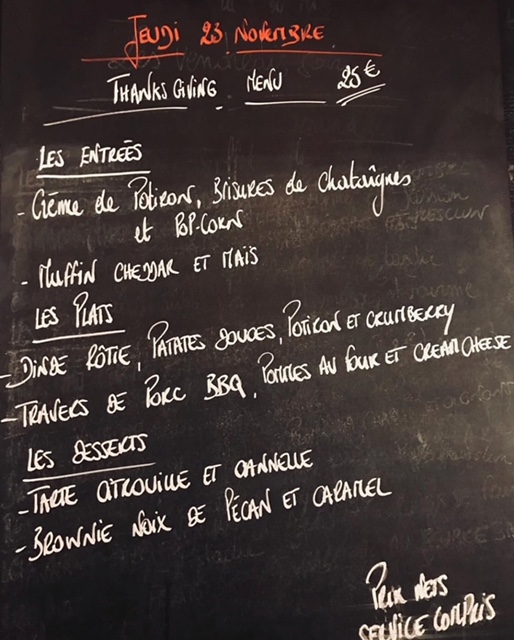 JEUDI 23 NOVEMBRE
THANKS GIVING MENU 25€
LES ENTREÉS
- Crème de Potiron, Brisures de Chataîgnes
et POP-CORN
- Muffin CHEDDAR ET MAÏS
LES PLATS
- DINDE RÔTIE, PATATES DOUCES, POTIRON ET CRUMBERRY
- TRAVERS DE PORC BBQ, POMMES AU FOUR ET CREAM CHEESE
LES DESSERTS
- TARTE CITROUILLE ET CANNELLE
- BROWNIE NOIX DE PÉCAN ET CARAMEL
PRIX NETS
SERVICE COMPRIS